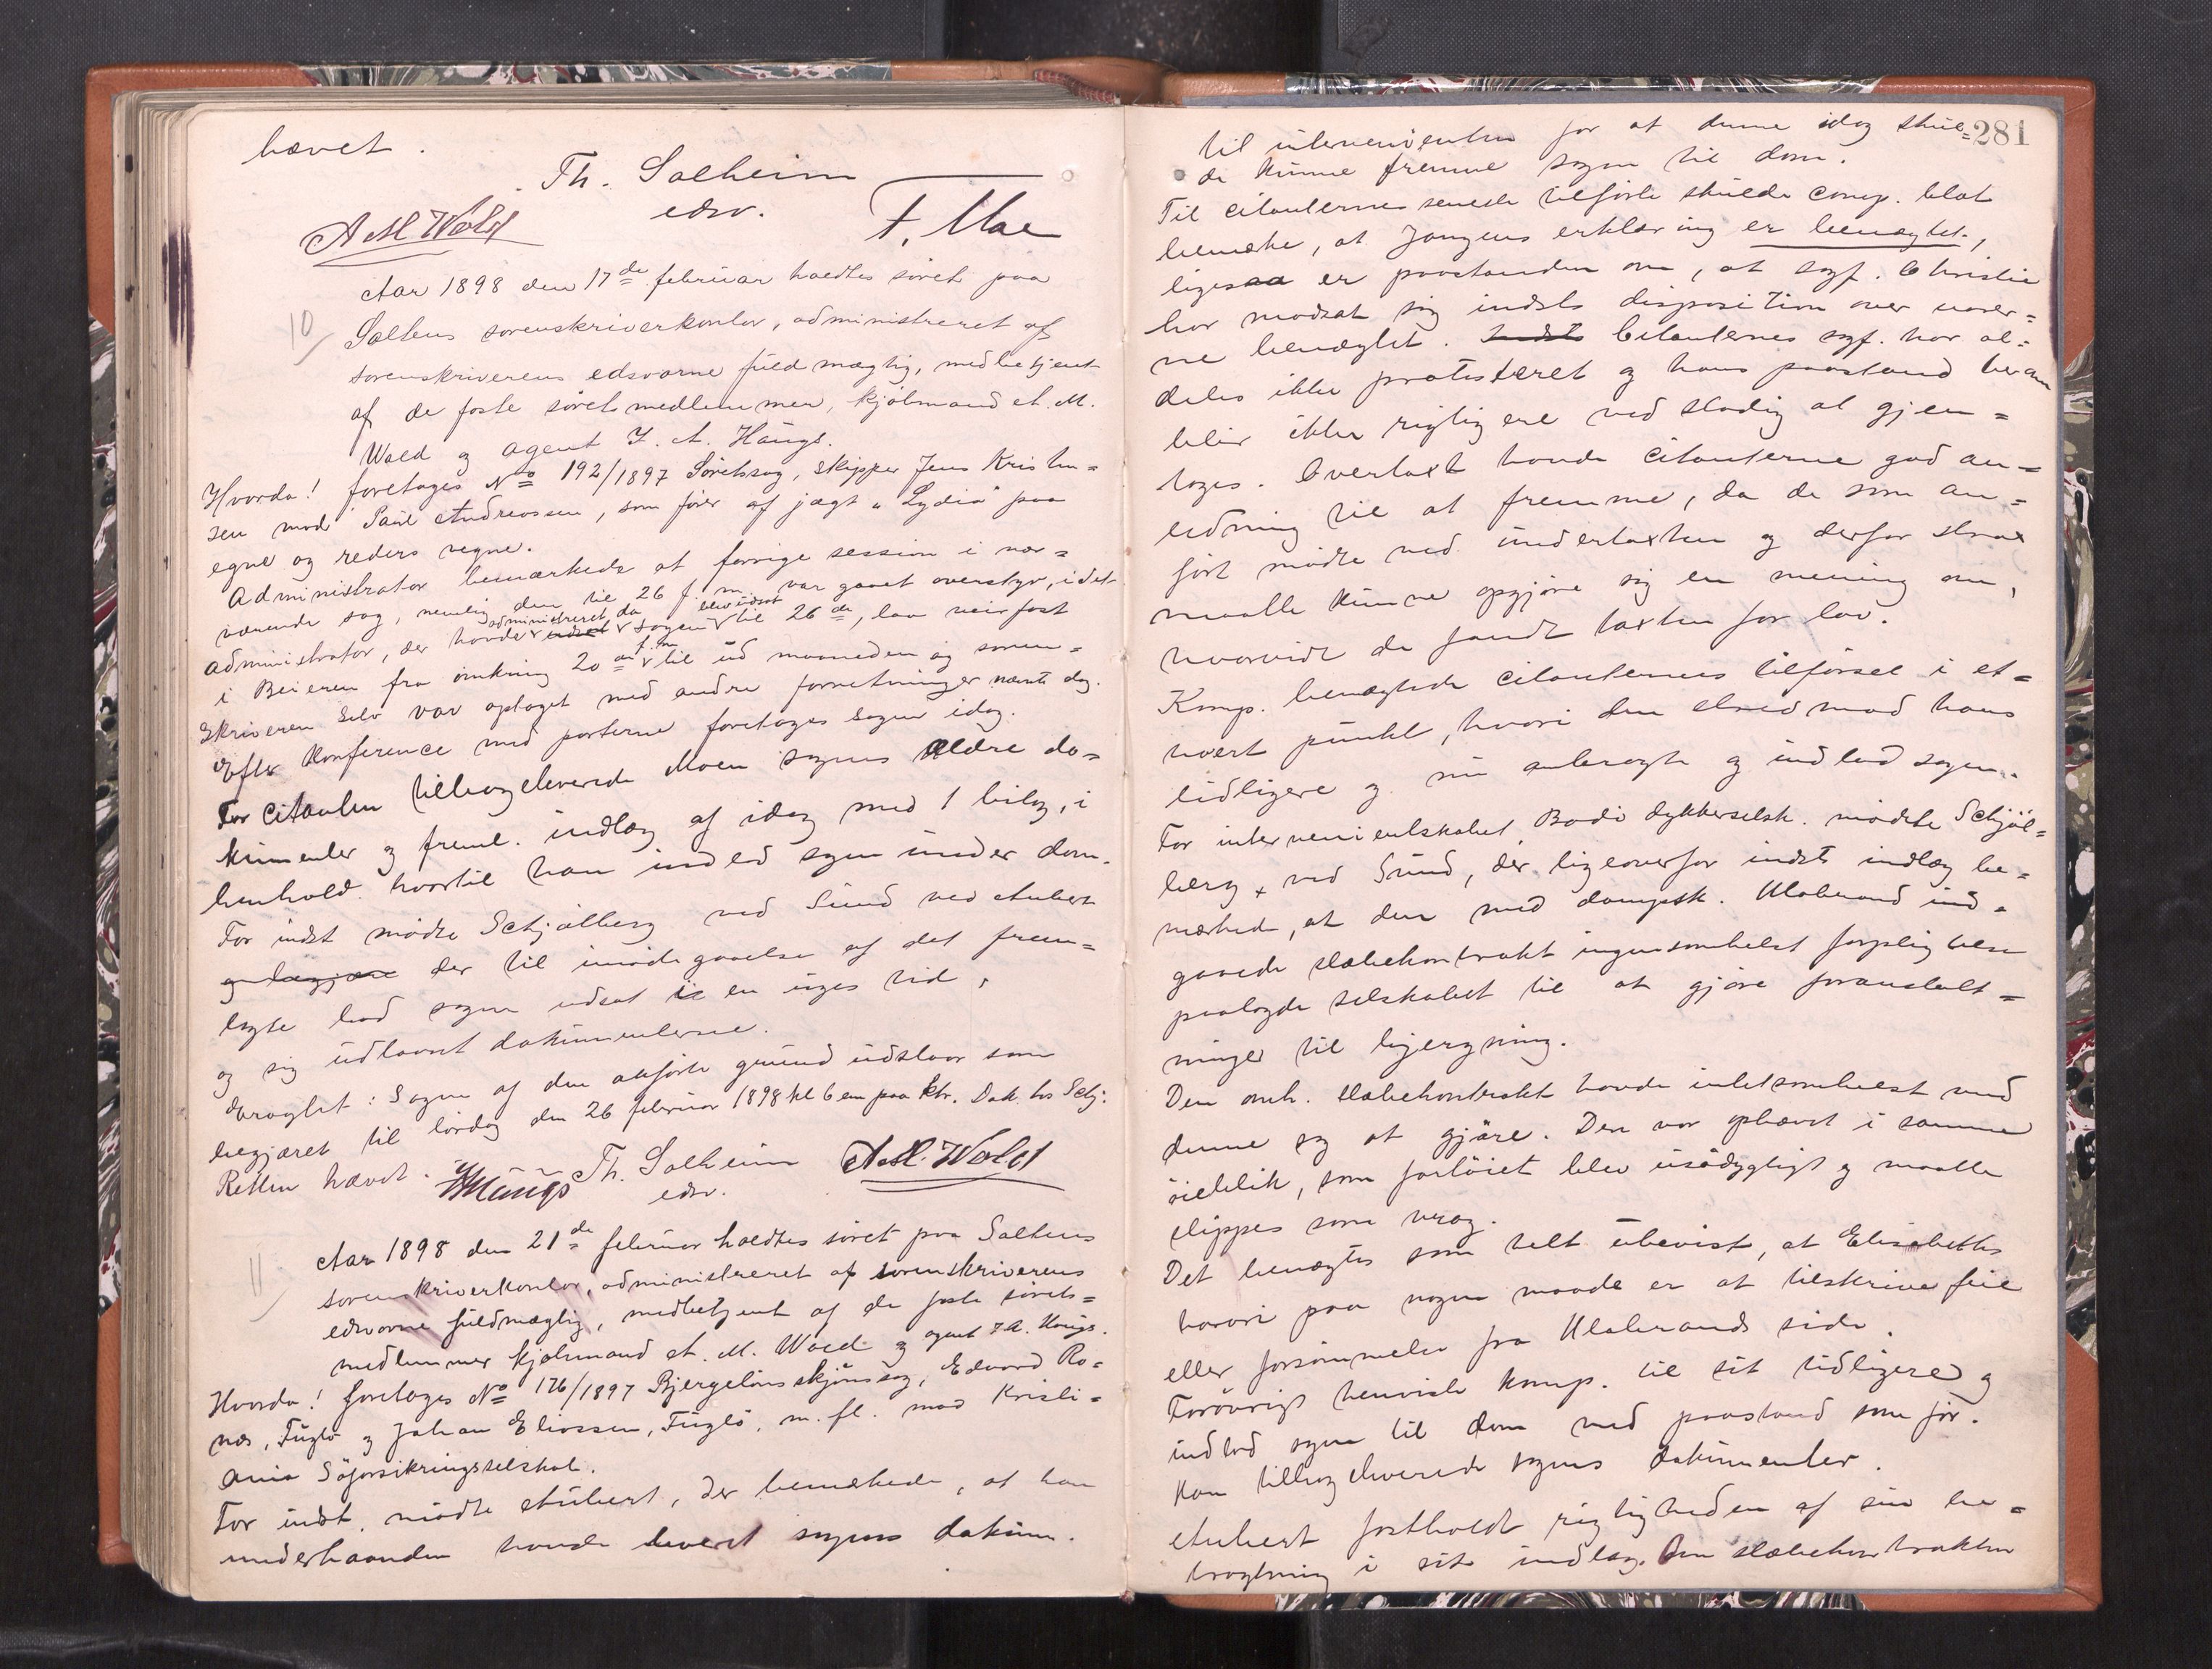 hævet.
Th. Solheim
edsv.
A M Wold
F. Moe
Aar 1898 den 17de februar holdtes söret paa
10
Saltens sorenskriverkontor, administreret af
sorenskriverens edsvorne fuldmægtig, med betjent
af de faste söretsmedlemmer, kjöbmand A. M.
Wold og agent J. A. Haugs.
Hvorda! foretoges No 192/1897 Söretssag, skipper Jens Kristen=
sen mod Paul Andreassen, som förer af jagt "Lydia" paa
egne og reders vegne.
Administrator bemærkede at forrige session i nær=
værende sag, nemlig den til 26 f. m. var gaaet overstyr, idet
administrator, der havde administreret da sagen blev udsat til 26de, laa veirfast
i Beieren fra omkring 20de f. m. til ud maaneden og soren=
skriveren selv var optaget med andre forretninger nævnte dag.
Efter konference med parterne foretoges sagen idag.
For Citanten tilbageleverede Moen sagens ældre do=
kumenter og freml. indlæg af idag med 1 bilag, i
henhold hvortil han indlod sagen under dom.
For indst mödte Schjölberg ved Sund ved Aubert
og begjære der til imödegaaelse af det frem=
lagte bad sagen udsat i en uges tid,
og sig udlaant dokumenterne.
Eragtet: Sagen af den anförte grund udstaar som
begjæret til lördag den 26 februar 1898 kl 6 em paa ktr. Dok. hos Schj.
Retten hævet.
JAHaugs Th. Solheim A M. Wold
edsv.
11
Aar 1898 den 21de februar holdtes söret paa Saltens
sorenskriverkontor, administreret af sorenskriverens
edsvorne fuldmægtig, medbetjent af de faste sörets=
medlemmer kjöbmand A. M. Wold og agent J A. Haugs.
Hvorda! foretoges No 176/1897 Bjergelönsskjönssag, Edvard Ro=
næs, Fuglö og Johan Eliassen, Fuglö, m. fl. mod Kristi=
ania Söforsikringsselskab.
For indst. mödte Aubert, der bemærkede, at han
underhaanden havde leveret sagens dokum.
281
til intervenienten for at denne idag skul=
de kunne fremme sagen til dom.
Til citanternes seneste tilförte skulde comp. blot
bemærke, at Jangens erklæring er benægtet,
ligesaa er paastanden om, at sagf. Christie
har modsat sig indsts disposition over varer=
ne benægtet. Indsts Citanternes sagf. har al=
deles ikke protesteret og hans paastand herom
blir ikke rigtigere ved stadig at gjen=
tages. Overtaxt havde citanterne god an=
ledning til at fremme, da de som an=
fört mödte ved undertaxten og derfor strax
maatte kunne opgjöre sig en mening om,
hvorvidt de fandt taxten for lav.
Komp. benægtede citanternes tilförsel i et=
hvert punkt, hvori den stred mod hans
tidligere og nu anbragte og indlod sagen.
For intervenientskabet Bodö dykkerselsk. mödte Schjöl=
berg ved Sund, der ligeoverfor indsts indlæg be=
mærkede, at den med dampsk. Ulabrand ind=
gaaede slæbekontrakt ingensomhelst forpligtelse
paalagde selskabet til at gjöre foranstalt=
ninger til bjergning.
Den omh. slæbekontrakt havde intetsomhelst med
denne sag at gjöre. Den var ophævet i samme
öieblik, som fartöiet blev usödygtigt og maatte
slippes som vrag.
Det benægtes som helt ubevist, at Elisabeths
havari paa nogen maade er at tilskrive feil
eller forsömmelse fra Ulabrands side.
Forövrigt henviste komp. til sit tidligere og
indlod sagen til dom med paastand som för.
Han tilbageleverede sagens dokumenter.
Aubert fastholdt rigtigheden af sin be=
tragtning i sit indlæg. Om slæbekontrakten